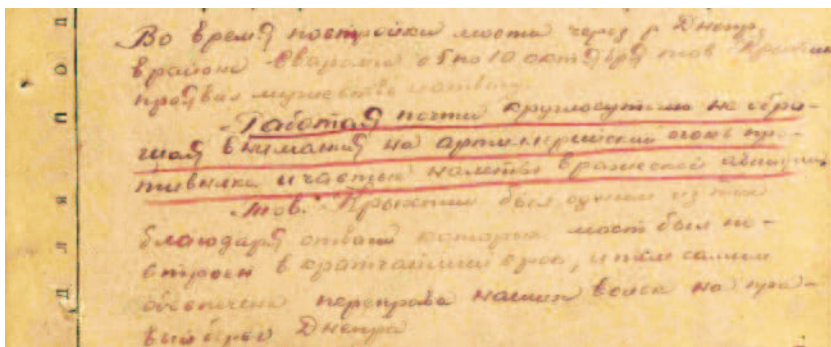 Во время постройки моста через р Днепр
в районе Сваромье с 5 по 10 октября тов
проявил мужество и отвагу.
Работая почти круглосуточно не обра-
щая внимания на артиллерийский огонь про-
тивника и частые налеты вражеской авиации
тов. был одним из тех
благодаря отваги которых мост был по-
строен в кратчайший срок, и тем самым
обеспечена переправа наших войск на пра-
вый берег Днепра
Для по